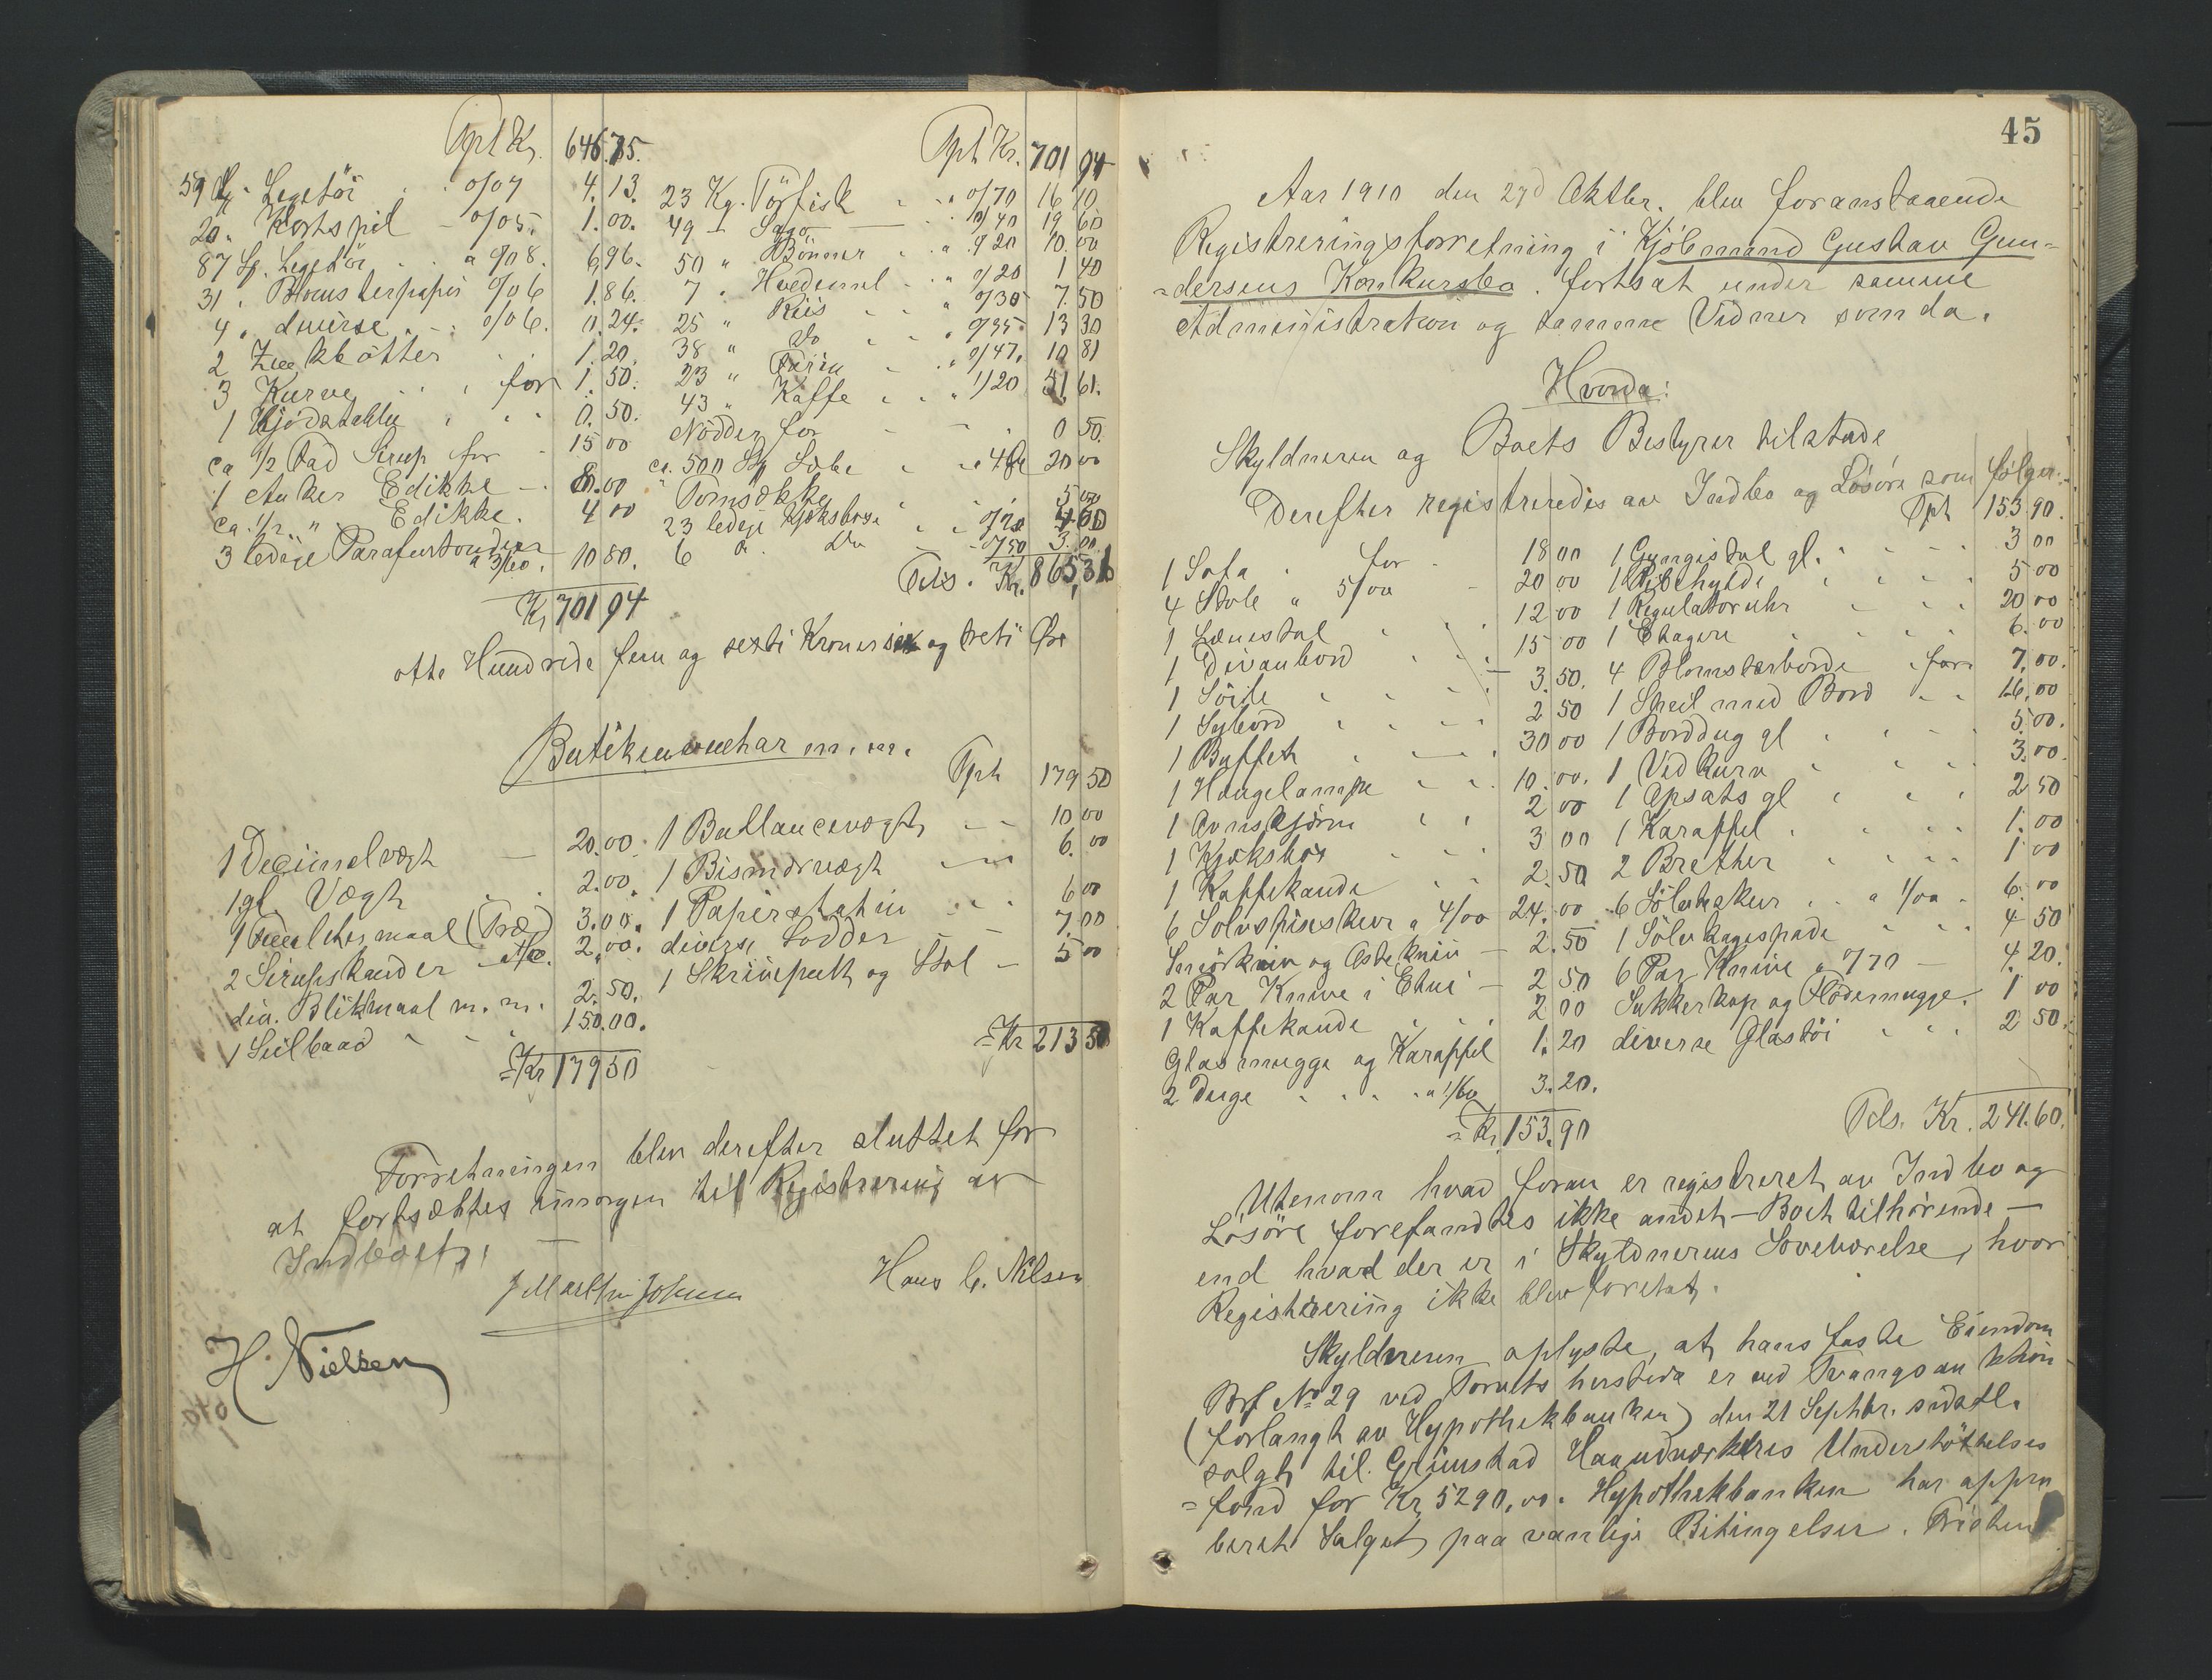 Tpt Kr. 646.75.
59 Sp. Legetöi " " 0/07 4.13.
20 " Kortspil - 0/05. 1.00.
87 Sp. Legetöi " " a 0/08. 6.96.
31 " Blomsterpapir 0/06 1.86.
4 " diverse " - " 0/06. 0.24.
2 Zinkbötter 1.20
3 Kurve " " " for 1.50.
1 Kjödstabbe " " " 0.50.
ca 1/2 Fad Sirup for - 15 00
1 Anker Edikke - 8.00
ca. 1/2 " Edikke. 4 00
3 ledige Parafintönder a 3/60. 10 80.
Kr 701 94
Tpt Kr. 701 94
23 Kg. Törfisk " " a 0/70 16 10
49 " Sago 0/40 19 60
50 " Bönner " a 0/20 10.00
7 " Hvedemel " " 0/20 1 40
25 " Riis " " " 0/30 7.50
38 " do " " 0/35 13 30
23 " Farin - " 0/47. 10 81
43 " Kaffe " " " 1/20 51 61.
Nödder for - - 0 50.
ca. 500 Stk Sæbe " " a 4 Øre 20 00
" Tomsække 5 00
23 ledige Kjæksboxe " " 0/20 4 60
6 " Do - - 0/50 3.00
Tils. Kr. 865,36
otte Hundrede fem og sexti Kroner sex og treti Øre
Butikinventar m. m.
1 Decimalvægt - 20.00
1 gl Vægt " " 2.00.
1 Litermaal (Træ) 3.00.
2 Sirupskander - a 1/00. 2.00.
div. Blikmaal m. m. 2.50.
1 Seilbaad " " " 150.00.
= Kr 179 50
Tpt 179 50
1 Ballancevægt - - 10 00
1 Bismervægt - 6.00
1 Papirstativ " " 6 00
diverse Lodder - - 7.00
1 Skrivepult og Stol - 5 00
= Kr 213 50
Forretningen blev derefter sluttet for
at fortsættes imorgen til Registrering av
Indboet. -
Hans C. Nilsen
H Nielsen
45
Aar 1910 den 27d Oktbr. blev foranstaaende
Registreringsforretning i Kjöbmand Gustav Gun=
=dersens Konkursbo. fortsat under samme
Administration og samme Vidner som da.
Hvorda:
Skyldneren og Boets Bestyrer tilstede
Derefter registreredes av Indbo og Lösöre som fölger:
1 Sofa " for - 18 00
4 Stole " 5/00 - 20 00
1 Lænestol " " " 12 00
1 Divanbord " " 15 00
1 Söile " " " - 3.50.
1 Sybord " " " " 2 50
1 Buffet " - " 30 00
1 Hængelampe " " 10.00.
1 Ovnskjærm " " 2 00
1 Kjøksbox " " " 3 00
1 Kaffekande " " 2.50
6 Sølvspiseskeer a 4/00 24.00
Smörkniv og Ostekniv - 2.50
2 Par Knive i Etui - 2 50
1 Kaffekande " " " 2 00
Glasmugge og Karaffel 1.20
2 Duge " " " " a 1/60 3.20.
= Kr 153.90
Tpt 153 90.
1 Gyngestol gl. " " - " 3 00
1 Bibehylde " " " " 5 00
1 Regulatoruhr " " " 20 00
1 Etagere " " " " 6.00
4 Blomsterborde " for 7.00.
1 Speil med Bord " " 16.00
1 Borddug gl " " " 5.00.
1 Vedkurv " " " 3.00.
1 Opsats gl " " " 2 50
1 Karaffel " " " " 1.00
2 Bretter " " " " 1 00
6 Sölvskeer " " a 1/00 - 6.00
1 Sölvkagespade " " " 4 50
6 Par Knive a 0/70 - 4.20.
Sukkerkop og Flödemugge. 1 00
diverse Glastöi " " " 2 50.
Tils. Kr. 241.60.
Utenom hvad foran er registreret av Indbo og
Lösöre forefandtes ikke andet - Boet tilhörende -
end hvad der er i Skyldnerens Soveværelse, hvor
Registrering ikke blev foretat.
Skyldneren oplyste, at hans faste Eiendom
Brf No 29 ved Torvets herstede er ved Tvangsauktion
(forlangt av Hypothekbanken) den 21 Septbr. sidstl.
solgt til Grimstad Haandværkeres Understöttelses
=fond for Kr 5290,00. Hypothekbanken har appro
beret Salget paa vanlige Betingelser.